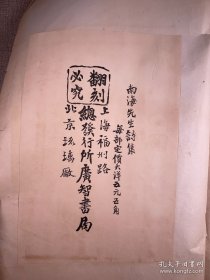 南海先生詩集
每部定價大洋五元五角
翻刻必究
上海福州路
總發行所廣智書局
北京琉璃廠